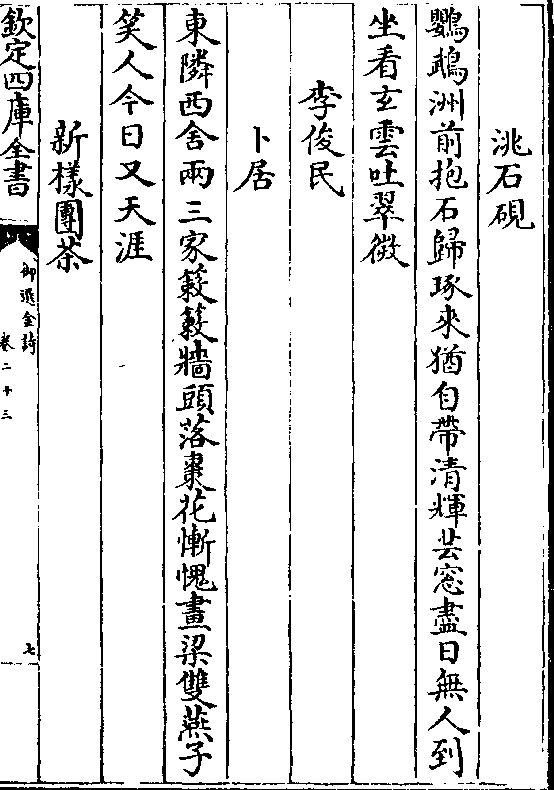 洮石硯
鸚鵡洲前抱石歸琢來猶自帶清輝芸窓盡日無人到
坐看玄雲吐翠微
李俊民
卜居
東隣西舍兩三家簌簌牆頭落棗花慚愧畫梁雙燕子
笑人今日又天涯
新樣團茶
欽定四庫全書
御選金詩
卷二十三
七